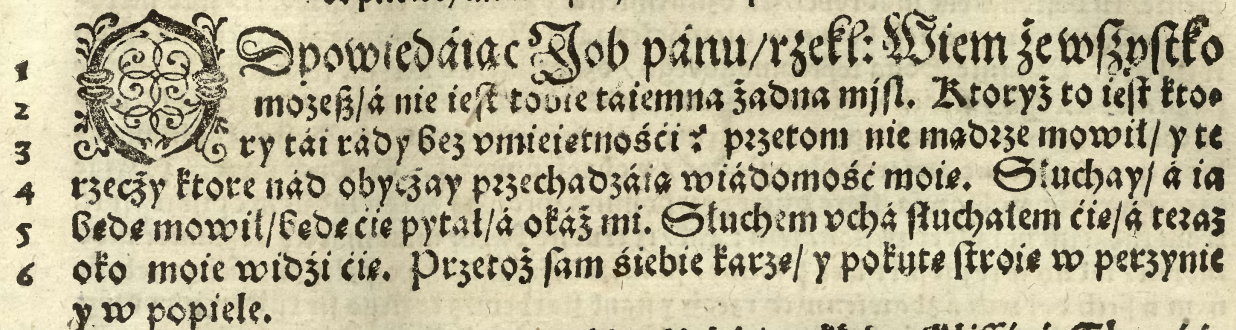 ODpowiedáiąc Job pánu/rzekł: Wiem że wszystko
1
możesz/á nie iest tobie táiemna żadna myśl. Ktoryż to iest kto-
2
ry tái rády bez vmieiętnośći? przetom nie mądrze mowił/ y te
3
rzeczy ktore nád obyczay przechadzáią wiádomość moię. Słuchay/ á ia
4
będę mowił/będę ćię pytał/á okáż mi. Słuchem vchá słuchałem ćię/á teraz
5
oko moie widźi ćię. Przetoż sam śiebie karzę/ y pokutę stroię w perzynie
6
y w popiele.